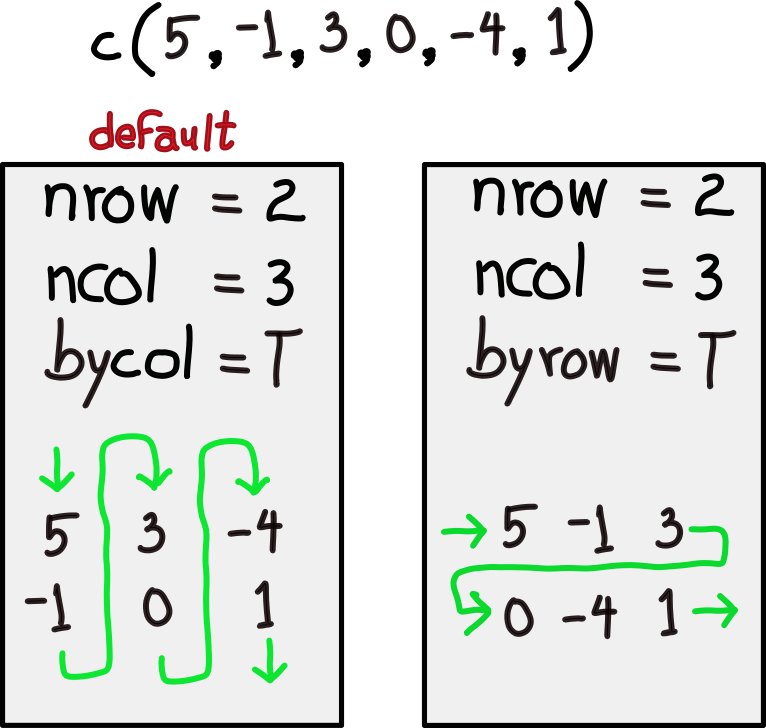 c(5, -1, 3, 0, -4, 1)
default
nrow = 2
ncol = 3
bycol = T
5 3 -4
-1 0 1
nrow = 2
ncol = 3
byrow = T
5 -1 3
0 -4 1